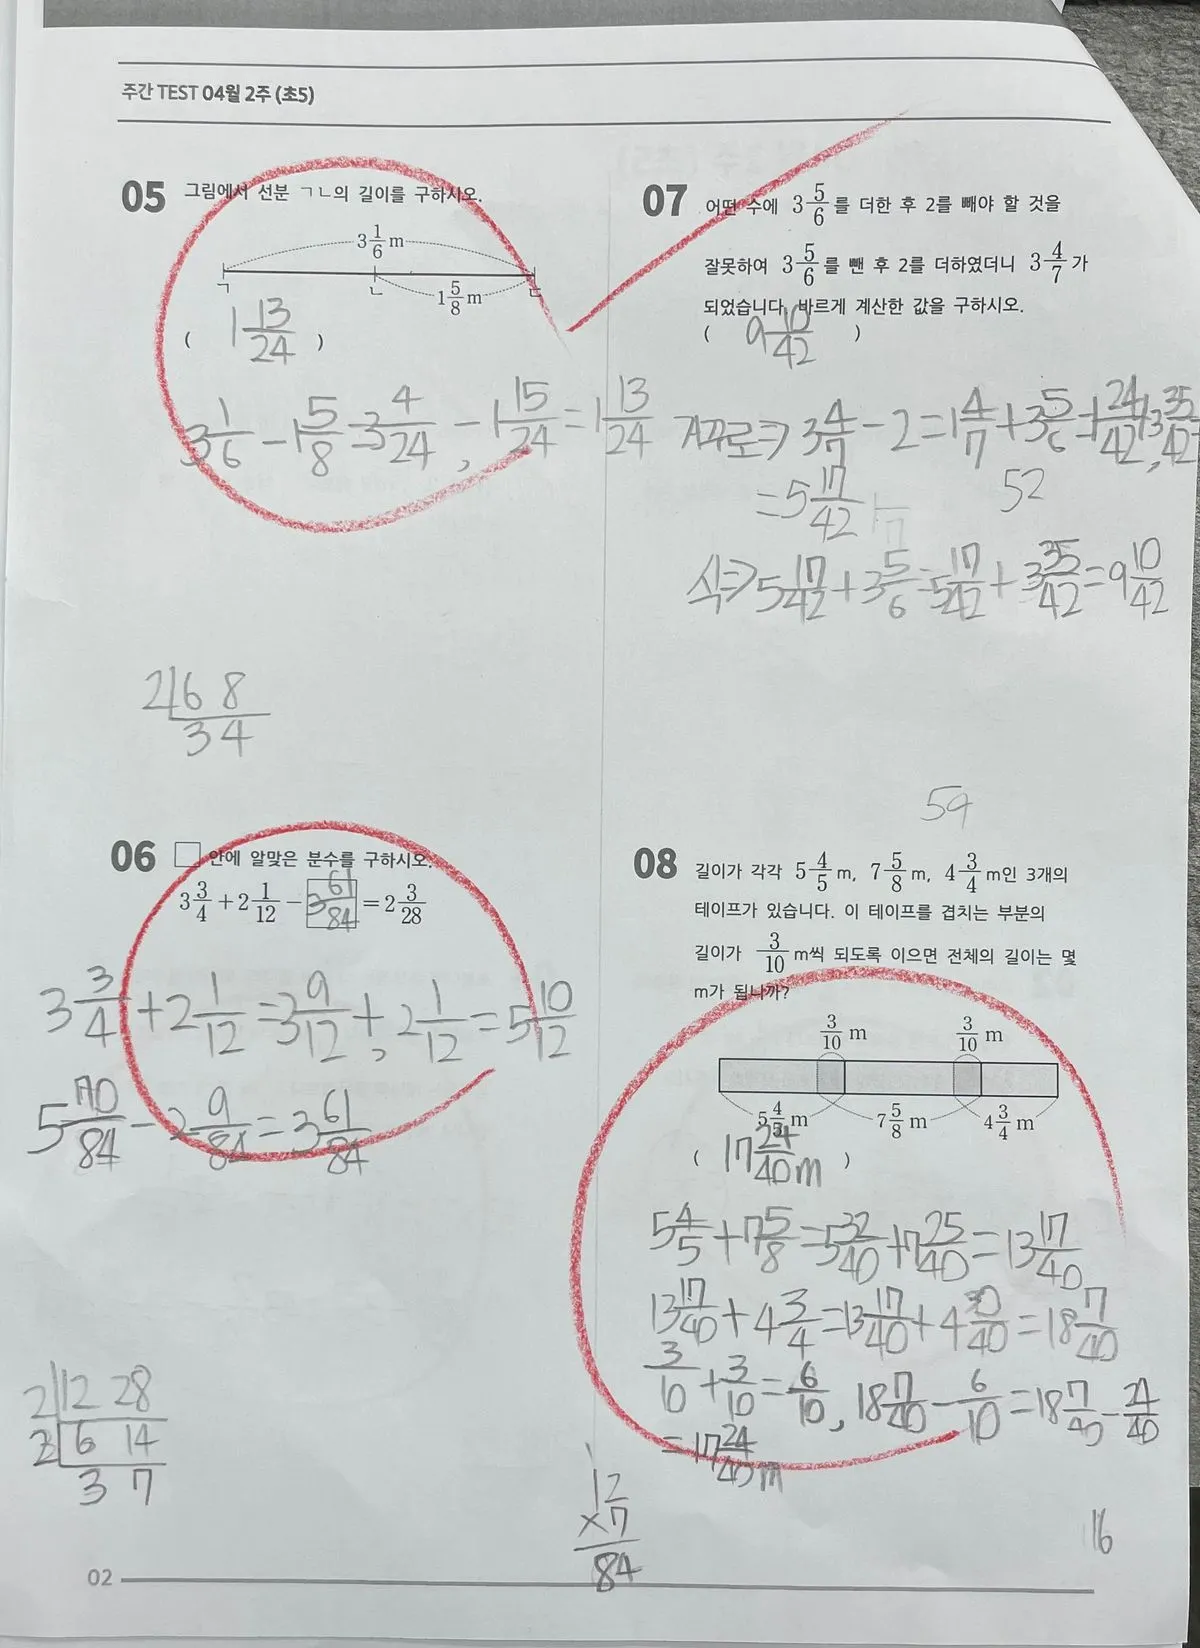 주간 TEST 04월 2주 (초5)
05 그림에서 선분 ㄱㄴ의 길이를 구하시오.
3 1/6 m
ㄱ ㄴ ㄷ
1 5/8 m
( 1 13/24 )
3 1/6 - 1 5/8 = 3 4/24 - 1 15/24 = 1 13/24
2 6 8
3 4
06 □ 안에 알맞은 분수를 구하시오.
3 3/4 + 2 1/12 - 3 61/84 = 2 3/28
3 3/4 + 2 1/12 = 3 9/12 + 2 1/12 = 5 10/12
5 70/84 - 2 9/84 = 3 61/84
2 12 28
2 6 14
3 7
12
×7
84
07 어떤 수에 3 5/6 를 더한 후 2를 빼야 할 것을
잘못하여 3 5/6 를 뺀 후 2를 더하였더니 3 4/7 가
되었습니다. 바르게 계산한 값을 구하시오.
( 9 10/42 )
거꾸로⇒ 3 4/7 - 2 = 1 4/7 + 3 5/6 = 1 24/42 + 3 35/42
= 5 17/42
52
식⇒ 5 17/42 + 3 5/6 = 5 17/42 + 3 35/42 = 9 10/42
59
08 길이가 각각 5 4/5 m, 7 5/8 m, 4 3/4 m인 3개의
테이프가 있습니다. 이 테이프를 겹치는 부분의
길이가 3/10 m씩 되도록 이으면 전체의 길이는 몇
m가 됩니까?
3/10 m 3/10 m
5 4/5 m 7 5/8 m 4 3/4 m
( 17 24/40 m )
5 4/5 + 7 5/8 = 5 32/40 + 7 25/40 = 13 17/40
13 17/40 + 4 3/4 = 13 17/40 + 4 30/40 = 18 7/40
3/10 + 3/10 = 6/10, 18 7/40 - 6/10 = 18 7/40 - 24/40
= 17 24/40 m
16
02